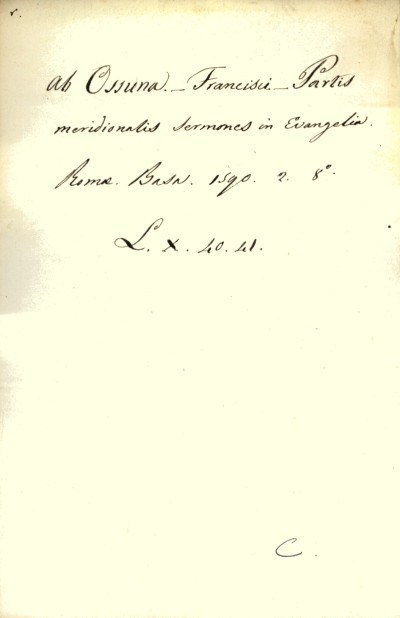 r.
ab Ossuna. _ Francisci _ Partis
meridionalis Sermones in Evangelia.
Romæ. Basa. 1590. 2. 8°.
L. X. 40. 41.
C.